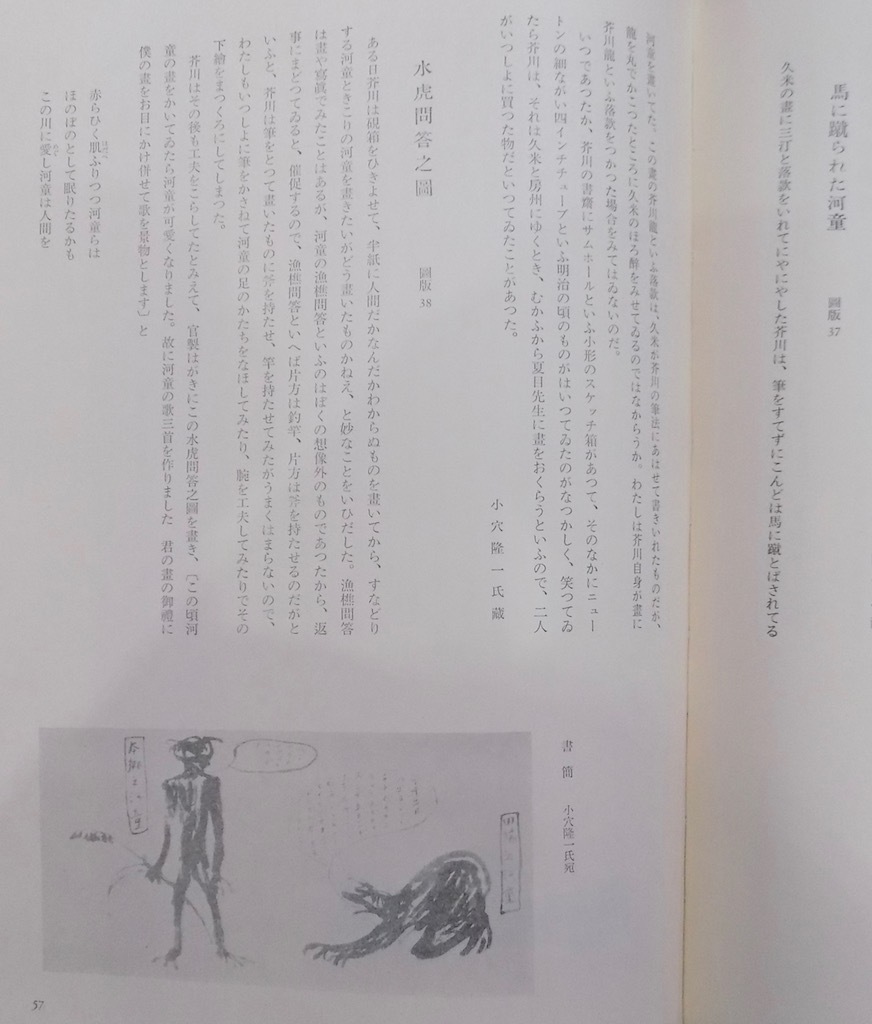 馬に蹴られた河童
圖版 37
久米の畫に三汀と落款をいれてにやにやした芥川は、筆をすてずにこんどは馬に蹴とばされてる
河童を畫いてた。この畫の芥川龍といふ落款は、久米が芥川の筆法にあはせて書きいれたものだが、
龍を丸でかこつたところに久米のほろ醉をみせてゐるのではなからうか。わたしは芥川自身が畫に
芥川龍といふ落款をつかつた場合をみてはゐないのだ。
いつであつたか、芥川の書齋にサムホールといふ小形のスケッチ箱があつて、そのなかにニュー
トンの細ながい四インチチューブといふ明治の頃のものがはいつてゐたのがなつかしく、笑つてゐ
たら芥川は、それは久米と房州にゆくとき、むかふから夏目先生に畫をおくらうといふので、二人
がいつしよに買つた物だといつてゐたことがあつた。
小穴隆一氏藏
水虎問答之圖
圖版 38
ある日芥川は硯箱をひきよせて、半紙に人間だかなんだかわからぬものを畫いてから、すなどり
する河童ときこりの河童を畫きたいがどう畫いたものかねえ、と妙なことをいひだした。漁樵問答
は畫や寫眞でみたことはあるが、河童の漁樵問答といふのはぼくの想像外のものであつたから、返
事にまどつてゐると、催促するので、漁樵問答といへば片方は釣竿、片方は斧を持たせるのだがと
いふと、芥川は筆をとつて畫いたものに斧を持たせ、竿を持たせてみたがうまくはまらないので、
わたしもいつしよに筆をかさねて河童の足のかたちをなほしてみたり、腕を工夫してみたりでその
下繪をまつくろにしてしまつた。
芥川はその後も工夫をこらしてたとみえて、官製はがきにこの水虎問答之圖を畫き、〔この頃河
童の畫をかいてゐたら河童が可愛くなりました。故に河童の歌三首を作りました　君の畫の御禮に
僕の畫をお目にかけ併せて歌を景物とします〕と
赤らひく肌ふりつつ河童らは
ほのぼのとして眠りたるかも
この川に愛し河童は人間を
書簡
小穴隆一氏宛
57